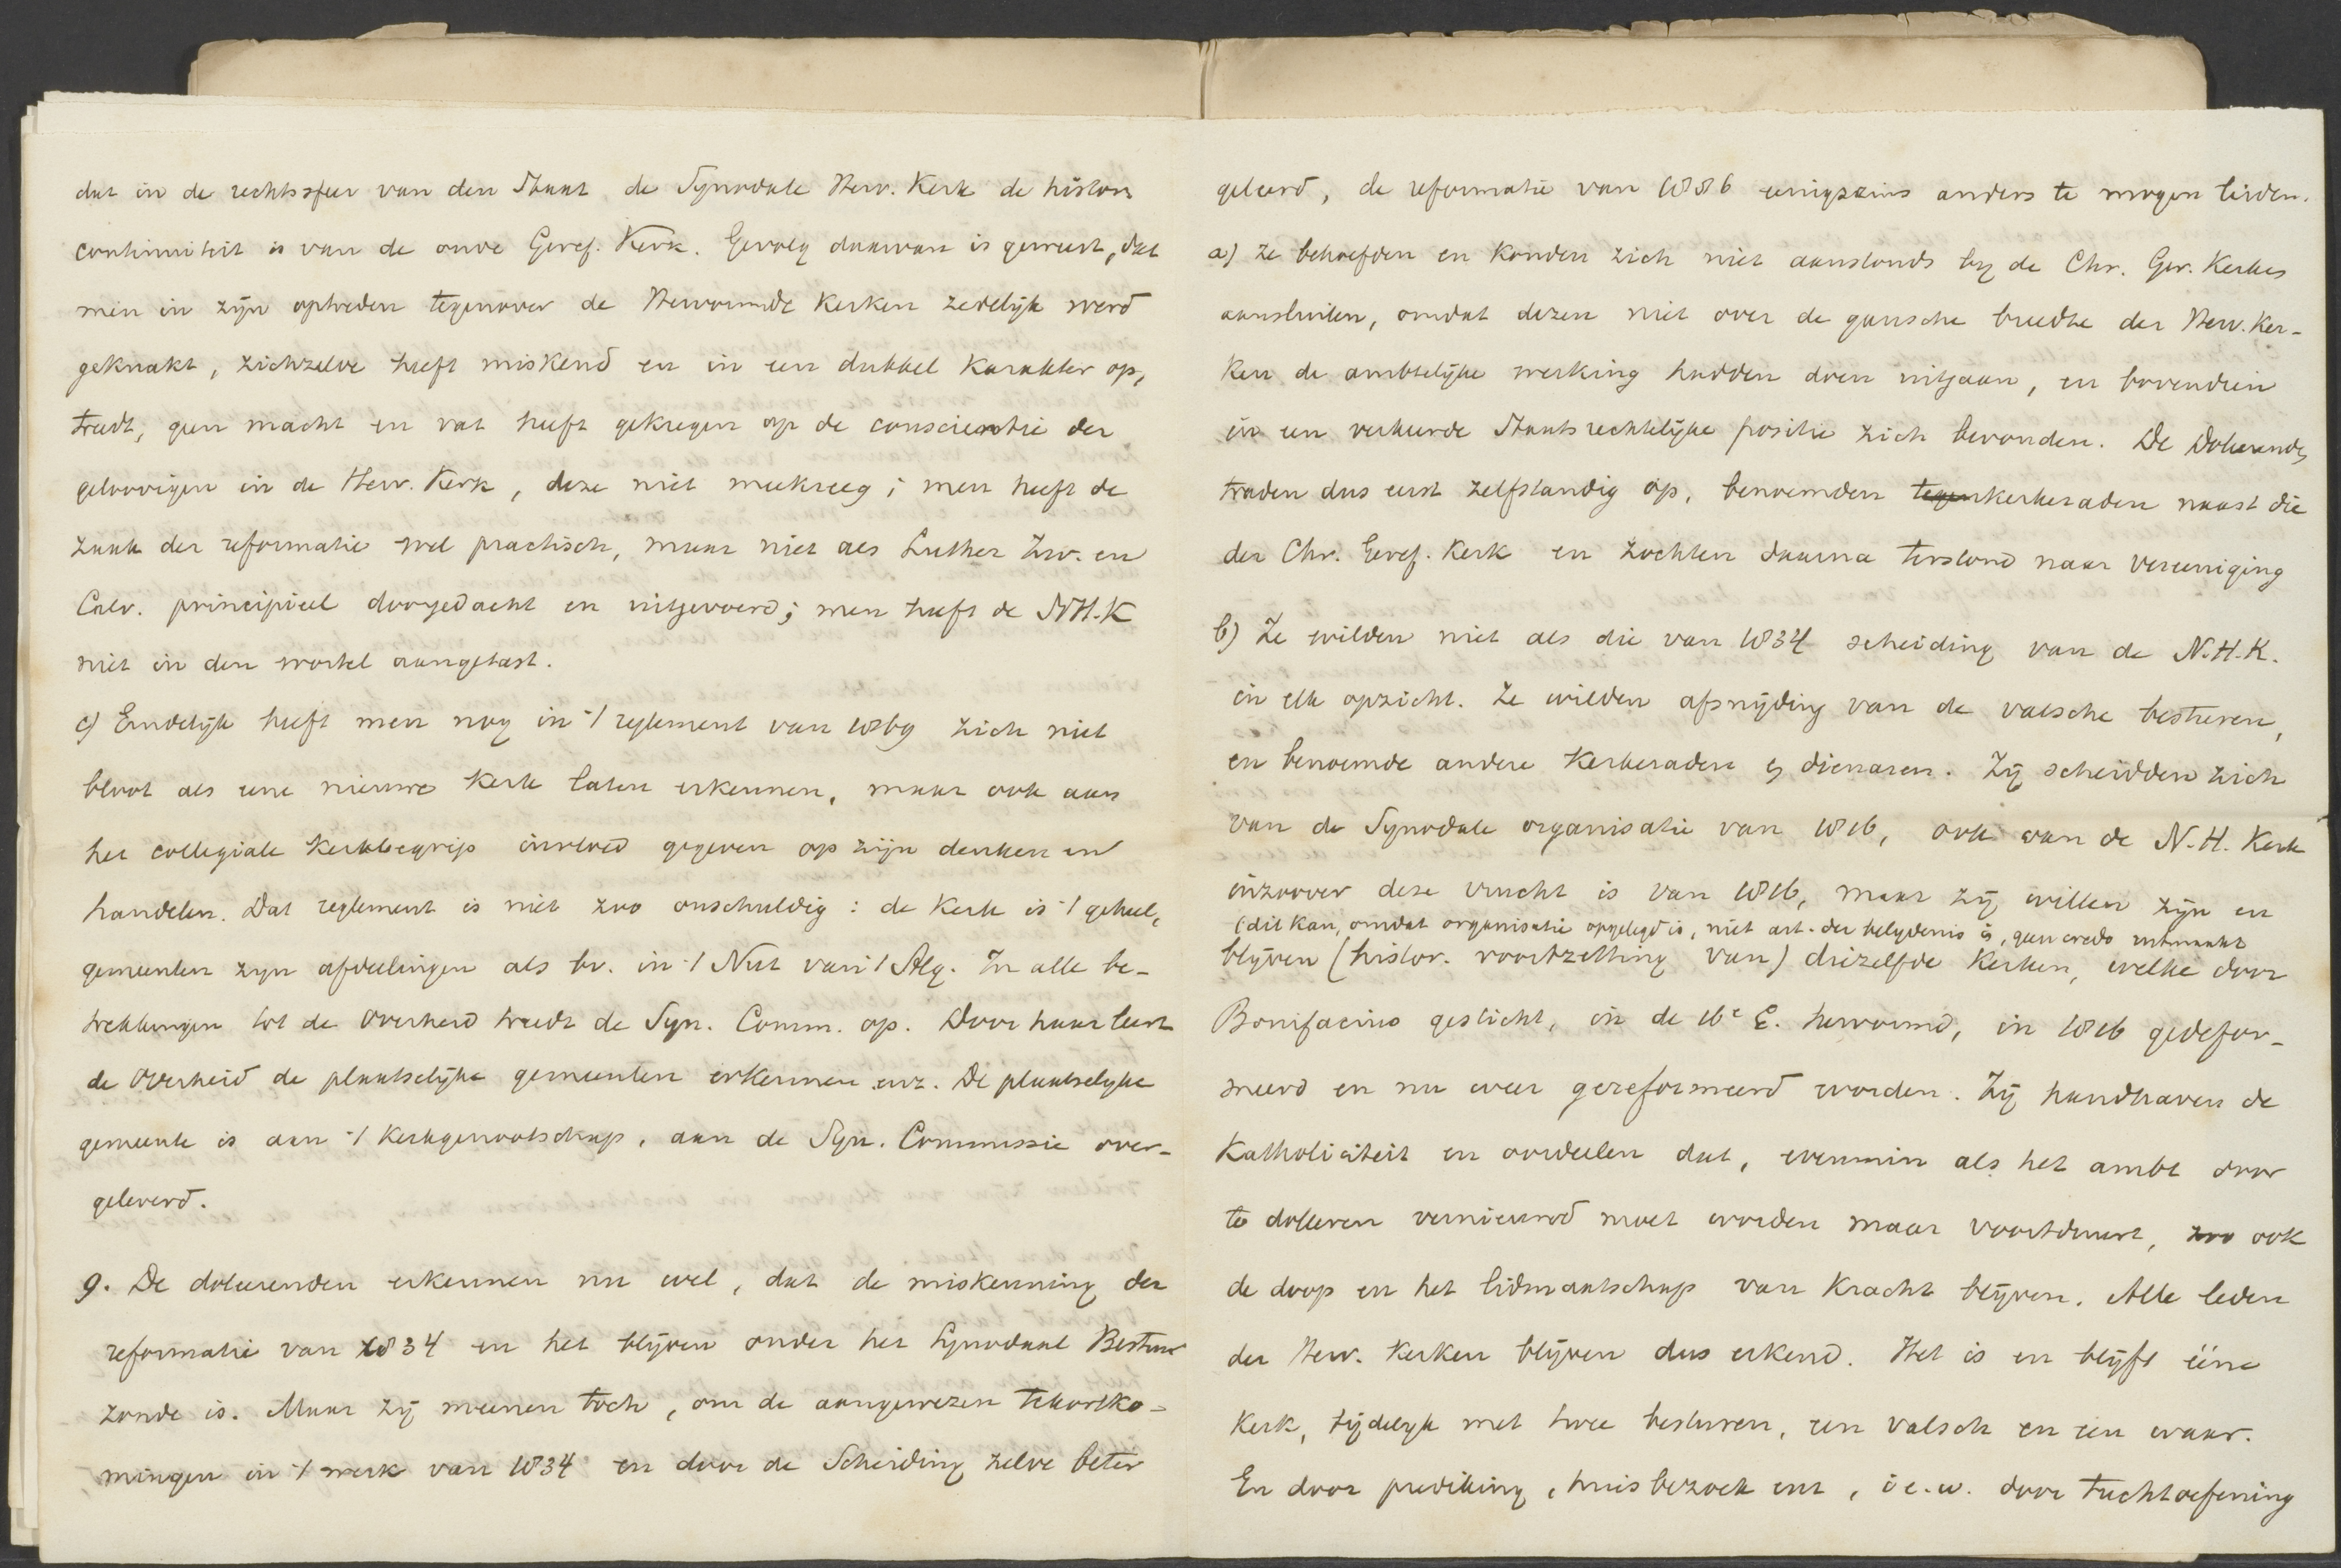 dat in de rechtssfeer van den Staat de Synodale Herv. Kerk de histor.
continuiteit is van de oude Geref. Kerk. Gevolg daarvan is geweest, dat
men in zijn optreden tegenover de Hervormde Kerken zedelijk werd
geknakt, zichzelve heeft miskend en in een dubbel karakter op,
treedt, geen macht en vat heeft gekregen op de conscientie der
geloovigen in de Herv. Kerk, deze niet meekreeg; men heeft de
zaak der reformatie wel practisch, maar niet als Luther Zw. en
Calv. principieel doorgedacht en uitgevoerd; men heeft de NH.K
niet in den wortel aangetast.
c) Eindelijk heeft men nog in 't reglement van 1869 zich niet
bloot als eene nieuwe Kerk laten erkennen, maar ook aan
het collegiale Kerkbegrip invloed gegeven op zijn denken en
handelen. Dat reglement is niet zoo onschuldig: de Kerk is 't geheel,
gemeenten zijn afdeelingen als bv. in 't Nut van 't Alg. In alle be-
trekkingen tot de overheid treedt de Syn. Comm. op. Door haar leert
de overheid de plaatselijke gemeenten erkennen enz. De plaatselijke
gemeente is aan 't Kerkgenootschap, aan de Syn. Commissie over-
geleverd.
9. De doleerenden erkennen nu wel, dat de miskenning der
reformatie van 1834 en het blijven onder het Synodaal Bestuur
zonde is. Maar zij meenen toch, om de aangewezen tekortko-
mingen in 't werk van 1834 en door de Scheiding zelve beter
geleerd, de reformatie van 1886 eenigszins anders te mogen leiden.
a) Ze behoefden en konden zich niet aanstonds bij de Chr. Ger. Kerken
aansluiten, omdat dezen niet over de gansche breedte der Herv. Ker-
ken de ambtelijke werking hadden doen uitgaan, en bovendien
in een verkeerde Staatsrechtelijke positie zich bevonden. De Doleerenden
traden dus eerst zelfstandig op, benoemden tegenkerkeraden naast die
der Chr. Geref. Kerk en zochten daarna terstond naar vereeniging
b) Ze wilden niet als die van 1834 scheiding van de N.H.K.
in elk opzicht. Ze wilden afsnijding van de valsche besturen,
en benoemde andere Kerkeraden en dienaren. Zij scheidden zich
van de Synodale organisatie van 1816, ook van de N.H. Kerk
inzoover deze vrucht is van 1816, maar zij willen zijn en
(dit kan, omdat organisatie opgelegd is, niet art. der belijdenis is, geen credo uitmaakt
blijven (histor. voortzetting van) diezelfde Kerken, welke door
Bonifacius gesticht, in de 16e E. hervormd, in 1816 gedefor-
meerd en nu weer gereformeerd worden. Zij handhaven de
Katholiciteit en oordeelen dat, evenmin als het ambt door
te doleeren vernieuwd moet worden maar voortduurt, zoo ook
de doop en het lidmaatschap van kracht blijven. Alle leden
der Herv. Kerken blijven dus erkend. Het is en blijft ééne
Kerk, tijdelijk met twee besturen, een valsch en een waar.
En door prediking, huisbezoek enz, i.e.w. door tuchtoefening